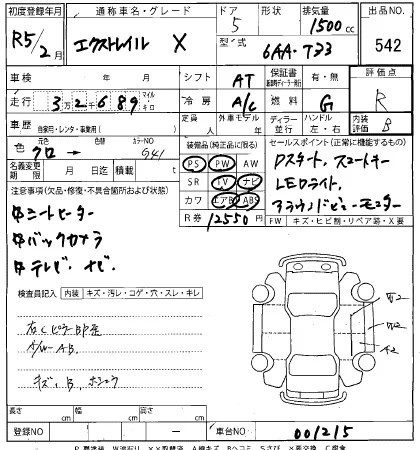 初度登録年月 通称車名・グレード ドア 形状 排気量 出品NO.
R5/2月 エクストレイル X 5 1500cc 542
型式 6AA-T33
車検 年 月 シフト AT 保証書 有・無 評価点
走行 3万2千689 マイル キロ 冷房 A/C 燃料 G R
車歴 自家用・レンタ・事業用( ) 定員 人 外車モデル 年 ディーラー 並行 ハンドル 左・右 内装評価 B
色 クロ → カラーNO G41 装備品(純正品に限る) セールスポイント(正常に機能するもの)
名義変更期限 月 日迄 積載 t PS PW AW Dスタート、スマートキー
注意事項(欠品・修復・不具合箇所および状態) SR TV ナビ LEDライト、
中シートヒーター カワ エアB ABS アラウンドビューモニター
中バックカメラ R券 12550円 FW キズ・ヒビ割・リペア跡・X要
中テレビ・ナビ・
検査員記入 内装 キズ・汚レ・コゲ・穴・スレ・キレ
キズ、B、
長さ cm 幅 cm 高さ cm
登録NO ー 車台NO 001215